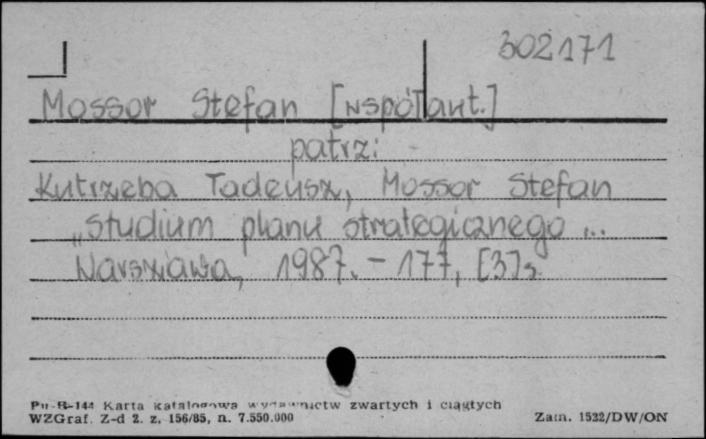 302171
Mossor Stefan [współaut.]
patrz:
Kutrzeba Tadeusz, Mossor Stefan
„Studium planu strategicznego ...
Warszawa, 1987. - 177, [3] s.
Pu-B-144 Karta katalogowa wydawnictw zwartych i ciągłych
WZGraf. Z-d 2. z. 156/85, n. 7.550.000 Zam. 1532/DW/ON